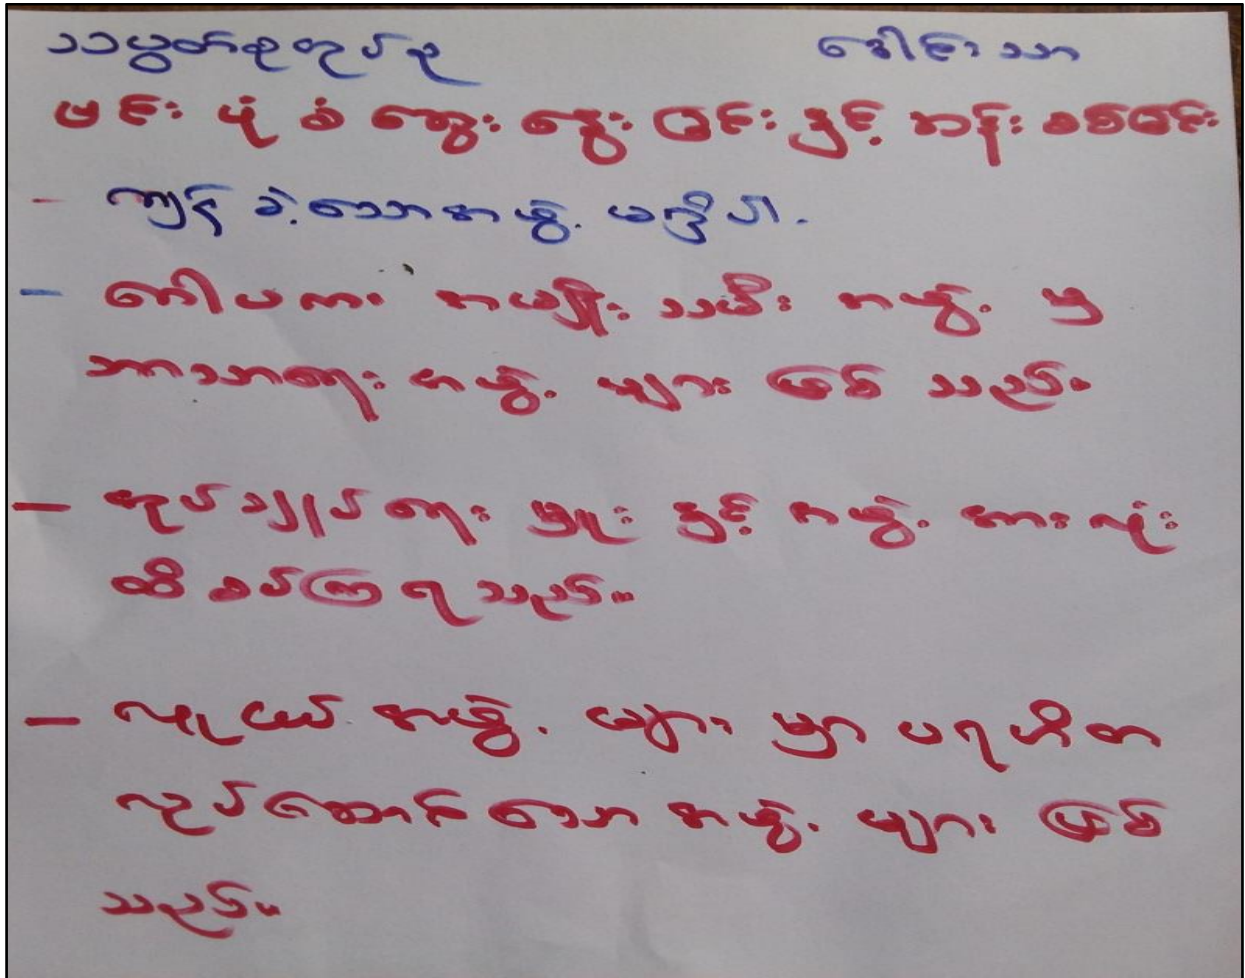 သပွတ်စုတုပ်စု ဒေါင်းသာ
ဗင်း ပုံ စံ ဆွေး နွေး ခြင်း နှင့် ဆန်း စစ်ခြင်း
- ကျန် ခဲ့သောအဖွဲ့ မရှိပါ.
- ဂေါပက အမျိုး သမီး အဖွဲ့ မှ
ဘာသာရေး အဖွဲ့ များ ဖြစ် သည်။
- အုပ်ချုပ် ရေး မှူး နှင့် အဖွဲ့ အားလုံး
ထိ စပ်ကြ ရ သည်။
- လူငယ် အဖွဲ့ များ မှာ ပရဟိတ
လုပ်ဆောင်သော အဖွဲ့ များ ဖြစ်
သည်။